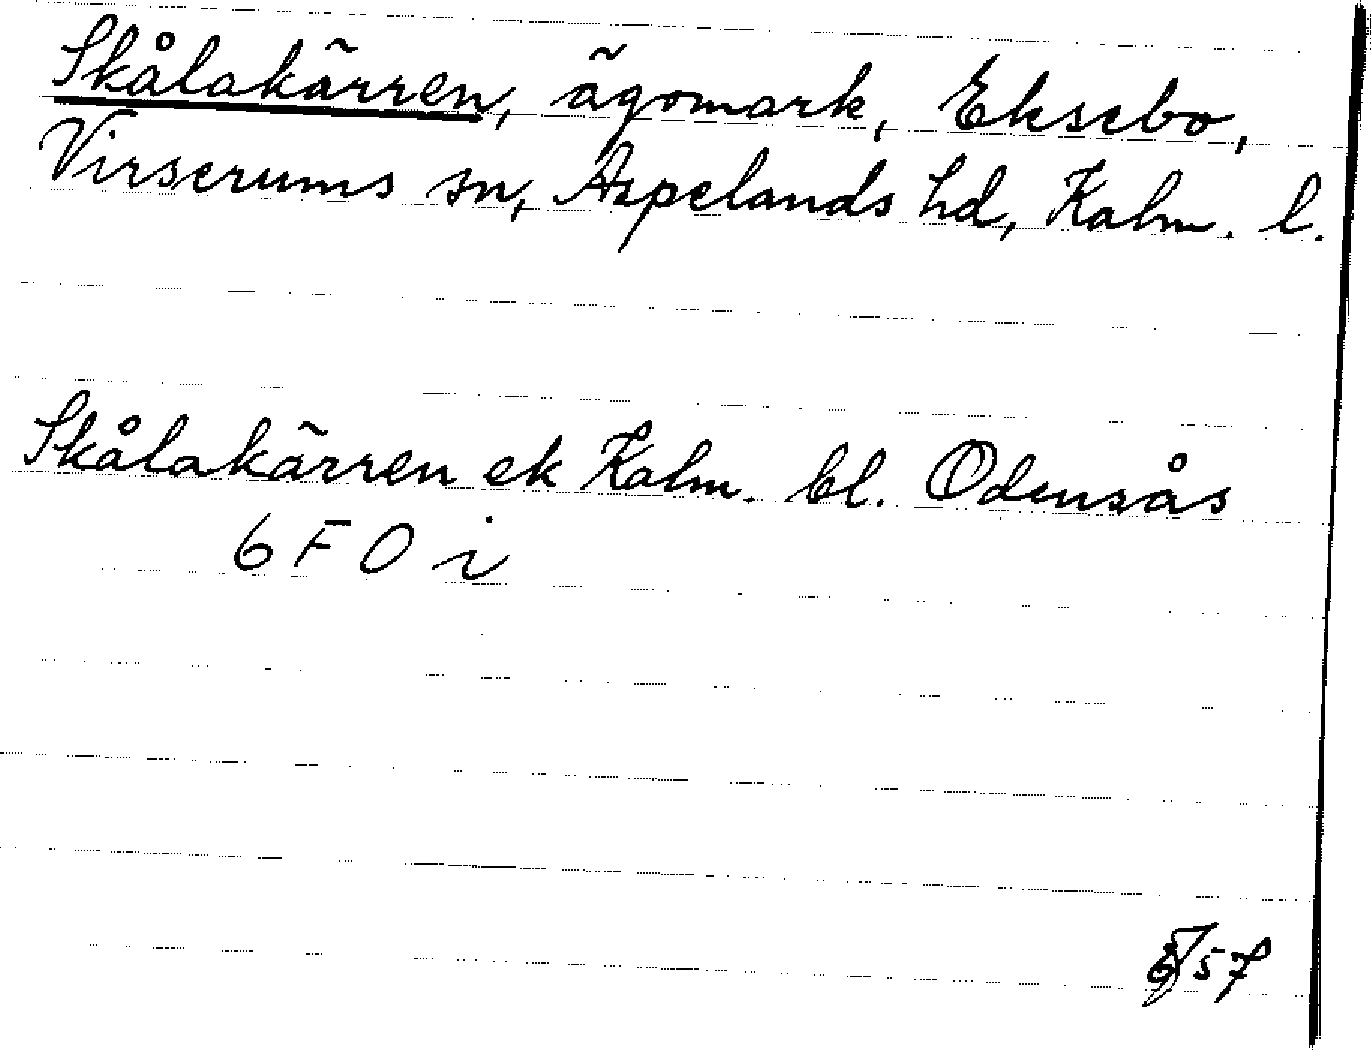 Skålakärren, ägomark, Eksebo,
Virserums sn, Aspelands hd, Kalm. l.
Skålakärren ek Kalm. bl. Odensås
6 F O i
57